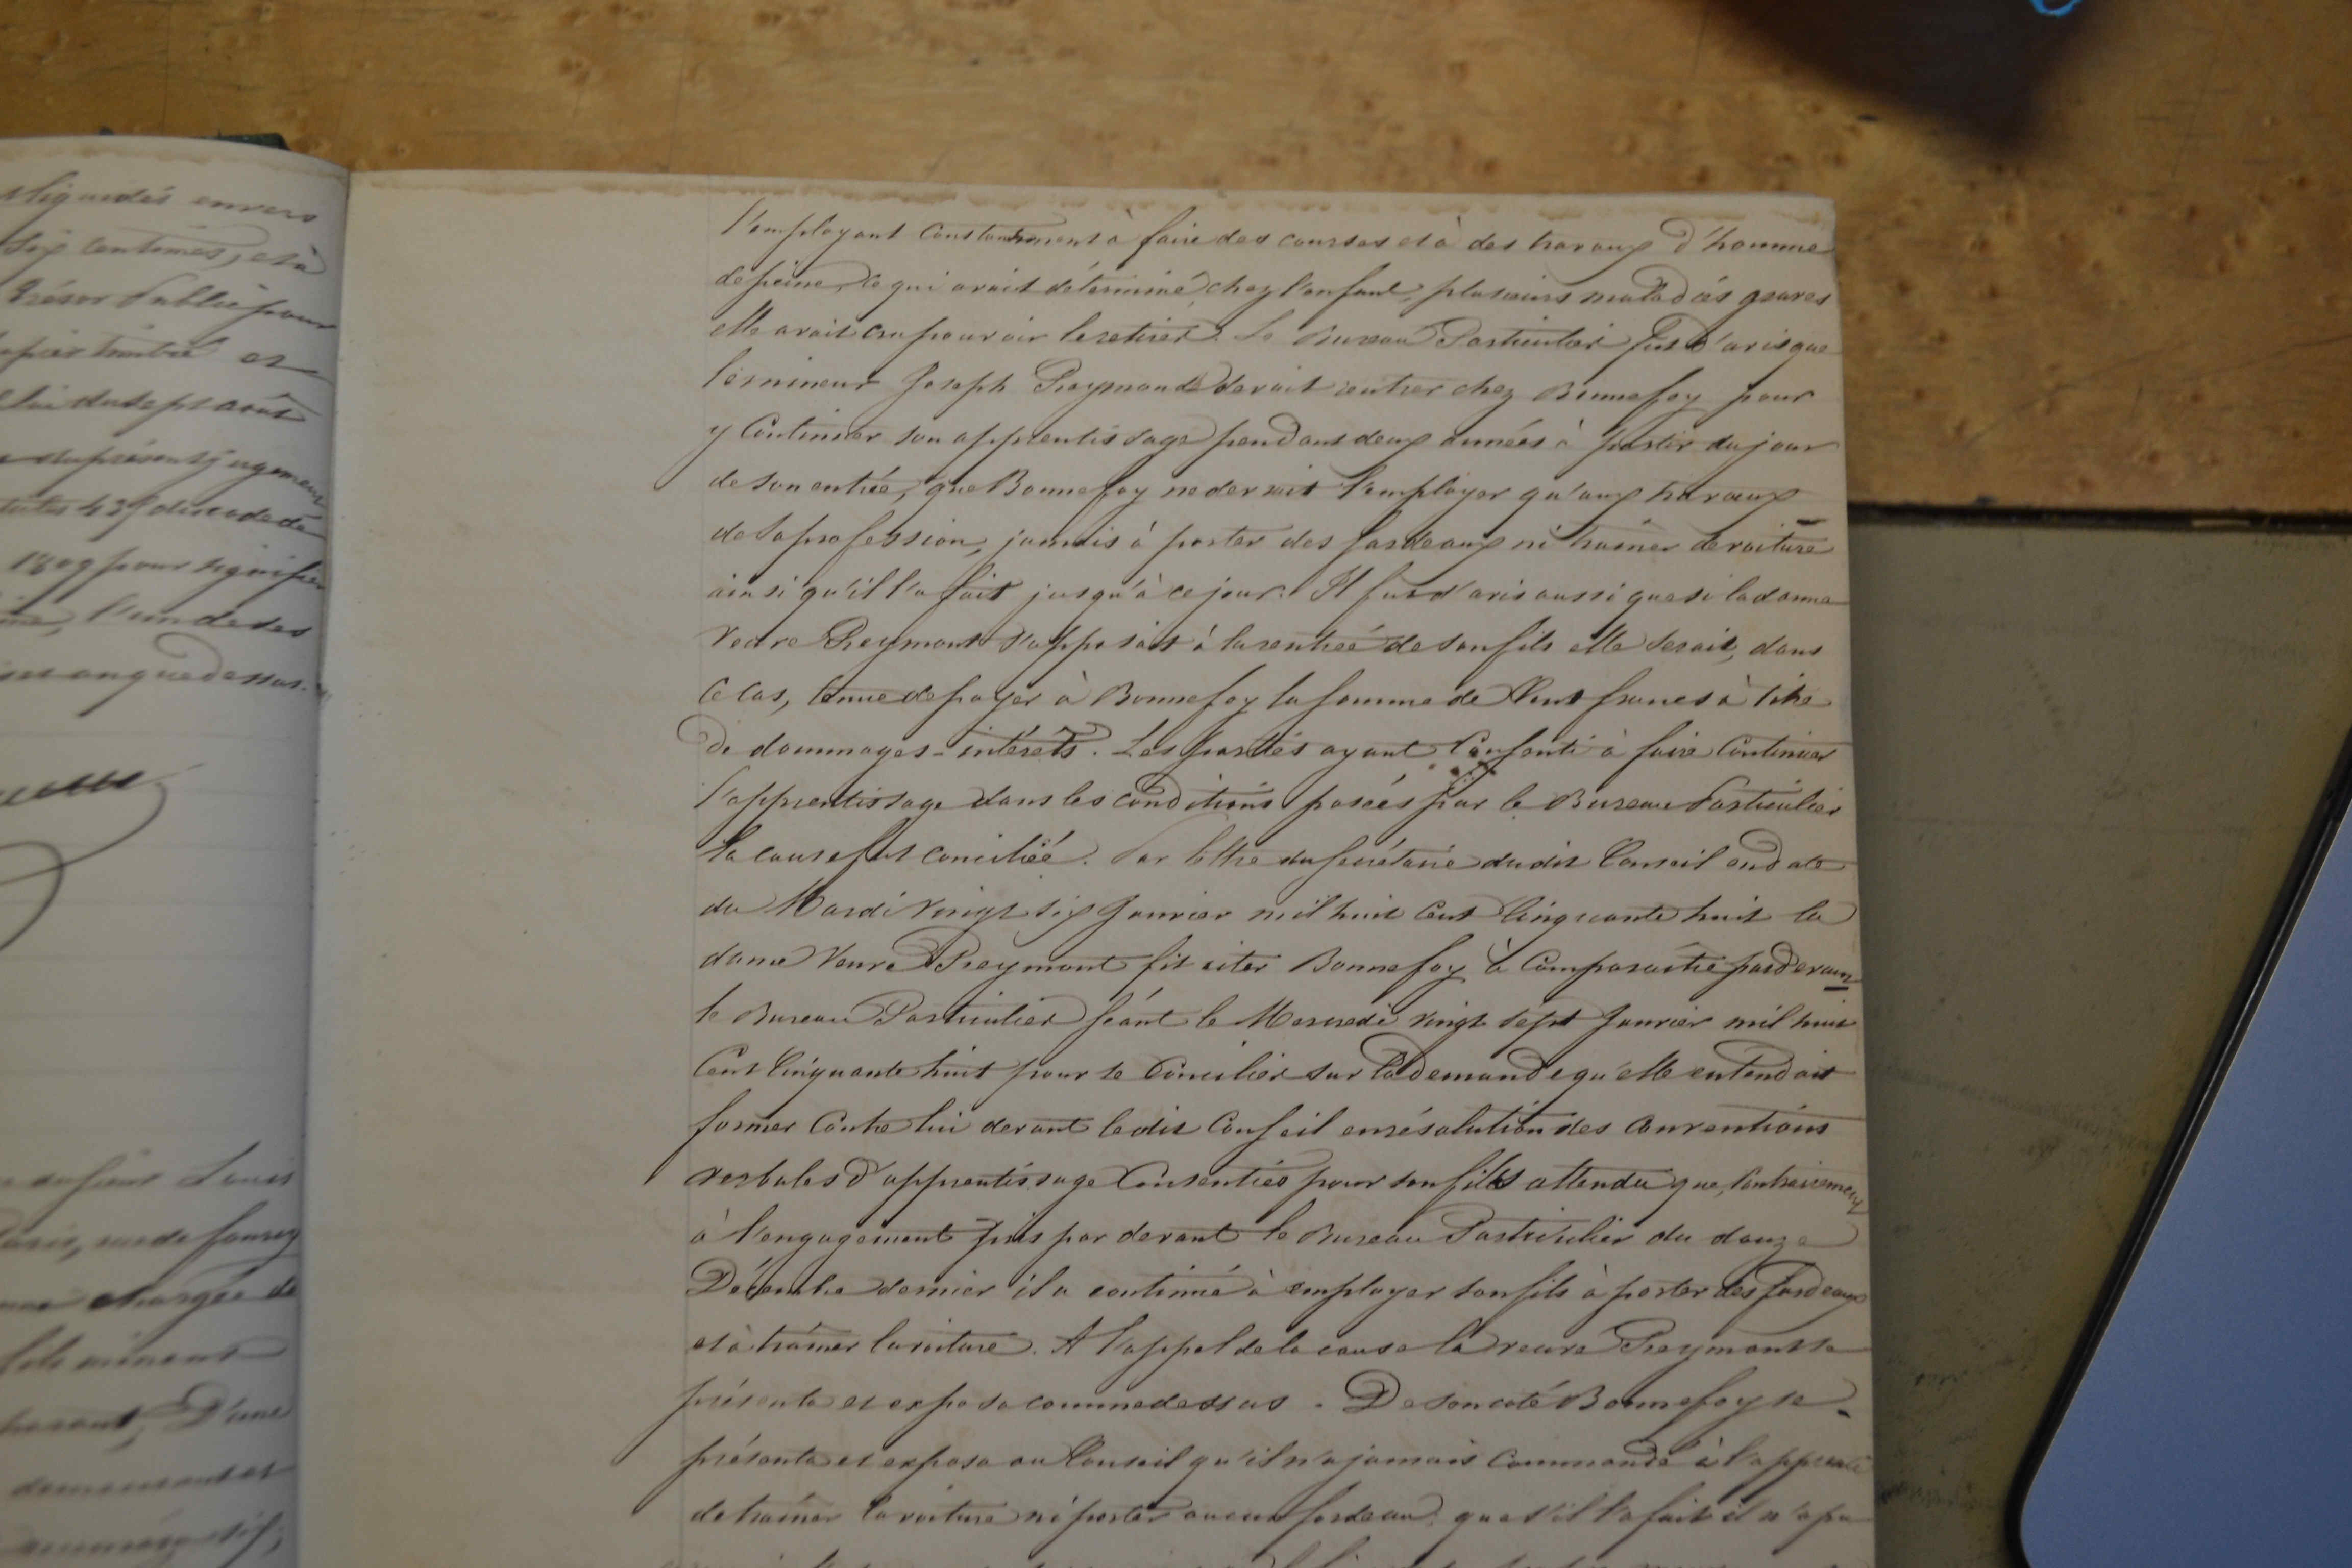 sliquidés envers
six centimes, et à
trésor Public pour
papier timbré et
loi du sept août
du présent jugement
435 du code de
1809 pour signifier
l'un de ses
que dessus.
du sieur Louis
Paris, rue de
chargée de
fils mineur
D'une
demeurant et
l'employant constamment à faire des courses et à des travaux d'homme
de peine, ce qui avait déterminé, chez l'enfant, plusieurs maladies graves
elle avait cru pouvoir le retirer. Le Bureau Particulier fut d'avis que
le mineur Joseph Preymond devait rentrer chez Bonnefoy pour
y continuer son apprentissage pendant deux années à partir du jour
de son entrée, que Bonnefoy ne devrait l'employer qu'aux travaux
de sa profession, jamais à porter des fardeaux ni trainer de voiture
ainsi qu'il l'a fait jusqu'à ce jour. Il fut d'avis aussi que si la dame
veuve Preymont s'opposait à la rentrée de son fils elle serait, dans
ce cas, tenue de payer à Bonnefoy la somme de Cent francs à titre
de dommages-intérêts. Les parties ayant Consenti à faire Continuer
l'apprentissage dans les conditions posées par le Bureau Particulier
la cause fut conciliée. Par lettre du secrétaire dudit Conseil en date
du Mardi vingt six Janvier mil huit cent Cinquante huit la
dame Veuve Preymont fit citer Bonnefoy à Comparaitre par devant
le Bureau Particulier séant le Mercredi vingt sept Janvier mil huit
Cent Cinquante huit pour se Concilier sur la demande qu'elle entendait
former Contre lui devant ledit Conseil en résolution des Conventions
verbales d'apprentissage Consenties pour son fils attendu que, Contrairement
à l'engagement pris par devant le Bureau Particulier du douze
Décembre dernier il a continué à employer son fils à porter des fardeaux
et à trainer la voiture. A l'appel de la cause la veuve Preymont se
présenta et exposa comme dessus. De son coté Bonnefoy se
présenta et exposa au Conseil qu'il n'a jamais commandé à l'apprenti
de trainer la voiture ni porter aucun fardeau, que s'il l'a fait il n'a pu